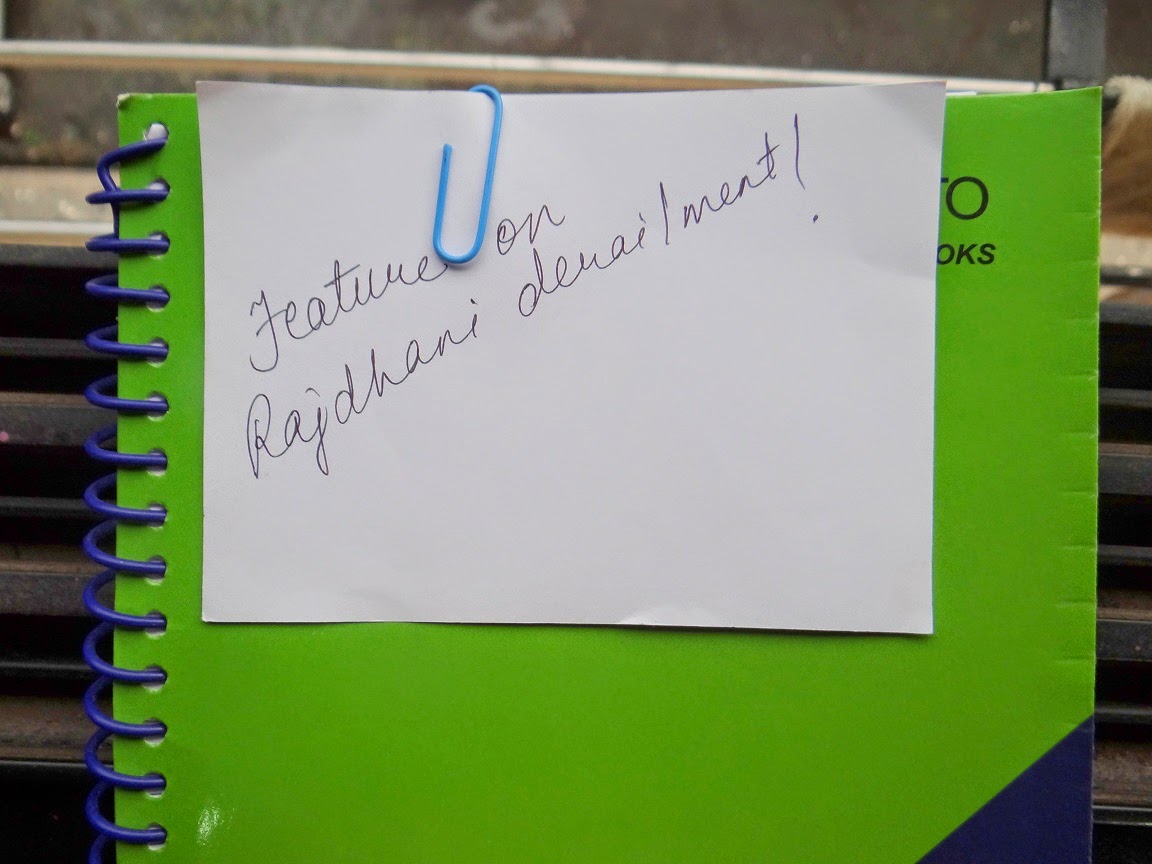 Feature on
Rajdhani derailment!
TO
OKS